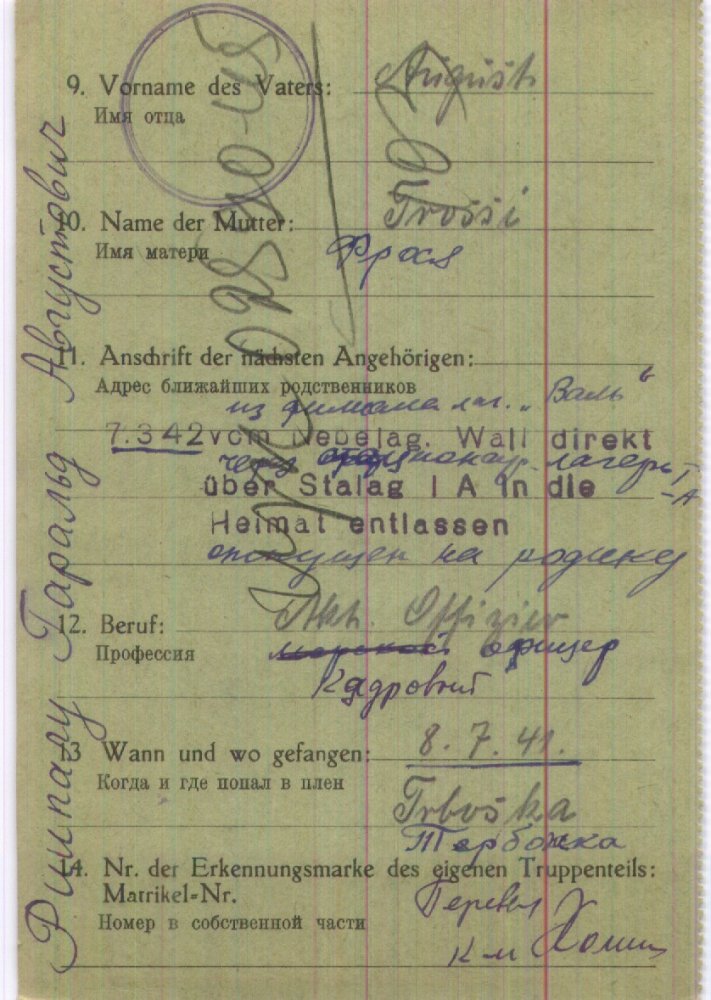 9. Vorname des Vaters: August
Имя отца
10. Name der Mutter:
Имя матери Фрося
11. Anschrift der nächsten Angehörigen:
Адрес ближайших родственников
из филиала лаг. „Валь“
7.3.42 vom Nebelag. Wall direkt
через стационар. лагерь I-A
über Stalag I A in die
Heimat entlassen
отпущен на родину
12. Beruf: Akt. Offizier
Профессия морской офицер
Кадровый
13 Wann und wo gefangen: 8.7.41.
Когда и где попал в плен
Тербошка
14. Nr. der Erkennungsmarke des eigenen Truppenteils:
Matrikel-Nr.
Номер в собственной части
Перевел
к-н
Гаральд Августович